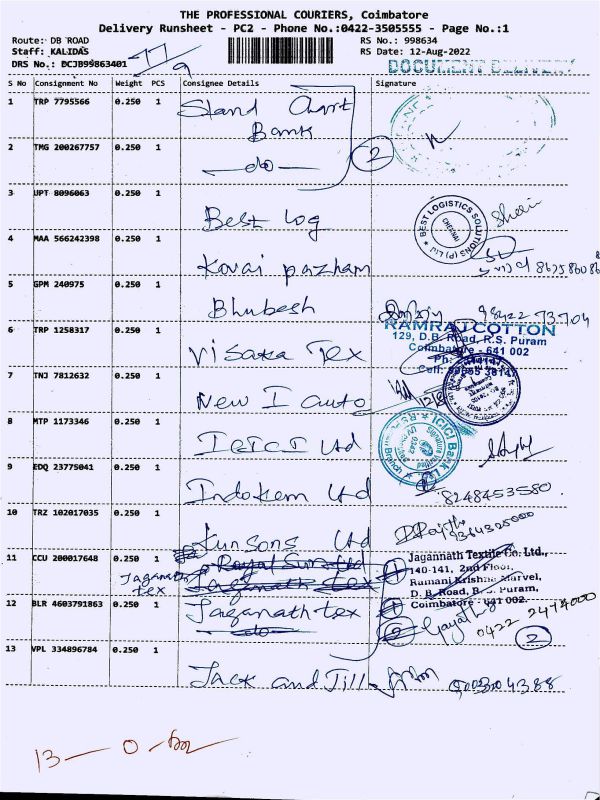 THE PROFESSIONAL COURIERS, Coimbatore
Delivery Runsheet - PC2 - Phone No.:0422-3505555 - Page No.:1
Route: DB ROAD
Staff: KALIDAS
DRS No.: DCJB99863401
RS No.: 998634
RS Date: 12-Aug-2022
DOCUMENT DELIVERY
S No Consignment No Weight PCS Consignee Details Signature
1 TRP 7795566 0.250 1 Stand Chart
Bank
2 TMG 200267757 0.250 1 -do- 2
3 UPT 8096063 0.250 1 Best Log
BEST LOGISTICS SOLUTIONS (P) LTD
CHENNAI
4 MAA 566242398 0.250 1 Kovai pazham
5 GPM 240975 0.250 1 Bhubesh
98422 73704
RAMRAJ COTTON
129, D.B. Road, R.S. Puram
Coimbatore - 641 002
6 TRP 1258317 0.250 1 Visaka Tex
7 TNJ 7812632 0.250 1 New I auto
12/8
8 MTP 1173346 0.250 1 ICICI Ltd
ICICI Bank
9 EDQ 23775041 0.250 1 Indokem Ltd
8248453580
10 TRZ 102017035 0.250 1 Kunsons Ltd
11 CCU 200017648 0.250 1 Royal Sun Ltd
Jaganath tex
Jaganath tex
Jagannath Textile Co. Ltd.,
140-141, 2nd Floor,
Ramani Krishna Marvel,
D. B. Road, R. S. Puram,
Coimbatore - 641 002.
12 BLR 4603791863 0.250 1 Jaganath tex
do
Gayathri
0422 2474000
2
13 VPL 334896784 0.250 1 Jack and Jill
13 - 0 -